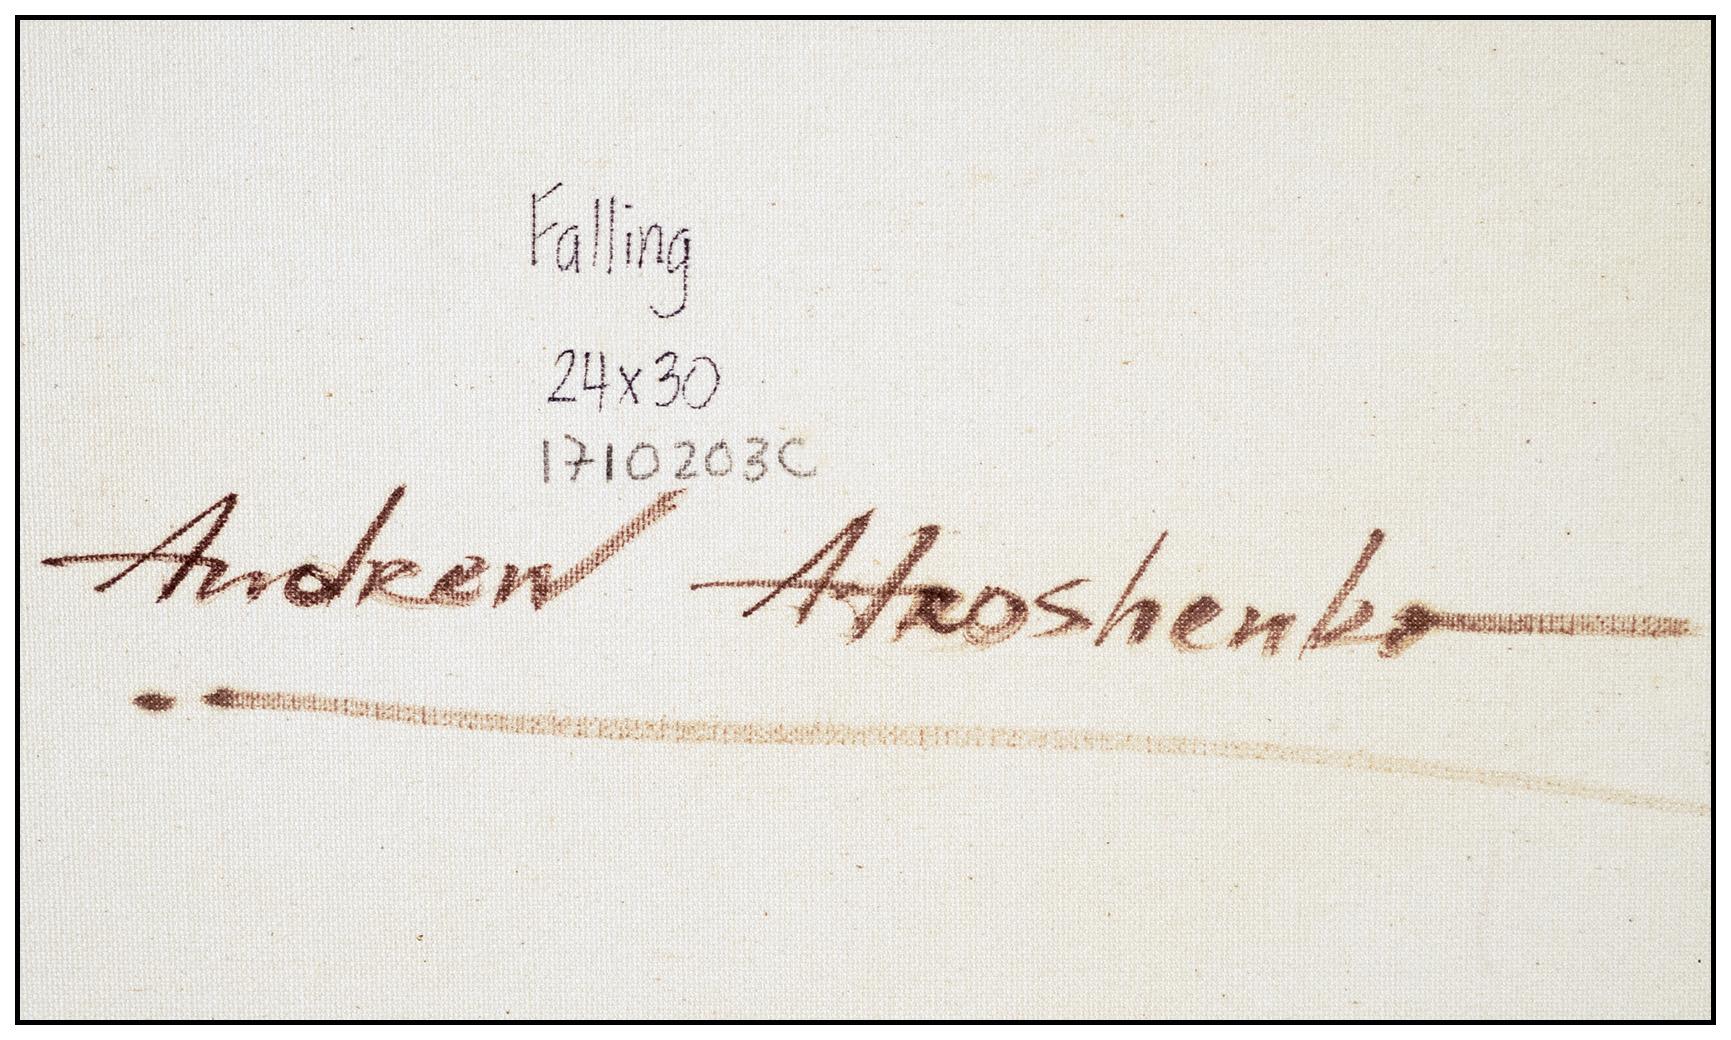 Falling
24x30
1710203C
Andrew Atroshenko